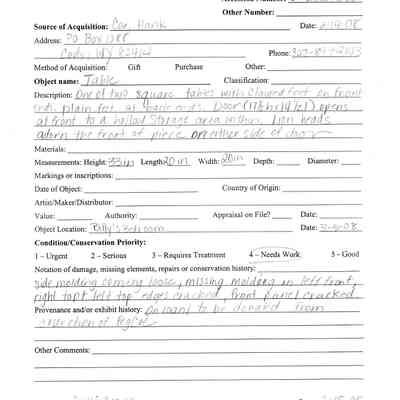 Other Number:
Source of Acquisition: Coe, Hank Date:
Address: PO Box 1088
Cody, WY 82414
Phone:
Method of Acquisition: Gift Purchase Other:
Object name: Table Classification:
Description: One of two square tables with Clawed feet on front
plain feet at back ends. Door opens
at front to a hollow storage area within. Lion heads
adorn the front of piece on either side of door
Materials:
Measurements: Height: 33 in Length: 20 in Width: 20 in Depth: Diameter:
Markings or inscriptions:
Date of Object: Country of Origin:
Artist/Maker/Distributor:
Value: Authority: Appraisal on File? Date:
Object Location: Billy's Bedroom Date:
Condition/Conservation Priority:
1 – Urgent 2 – Serious 3 – Requires Treatment 4 – Needs Work 5 – Good
Notation of damage, missing elements, repairs or conservation history:
side molding coming loose, missing molding in left front,
right top & left top edges cracked, front panel cracked
Provenance and/or exhibit history: On loan to be donated from
collection of
Other Comments: